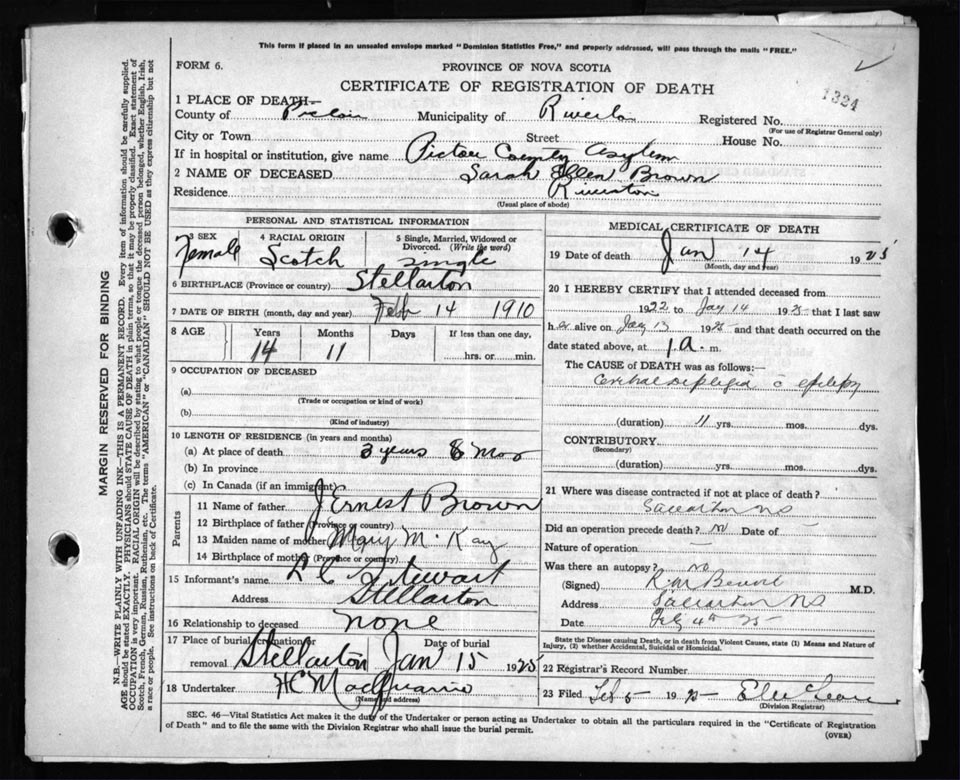 This form if placed in an unsealed envelope marked "Dominion Statistics Free," and properly addressed, will pass through the mails "FREE."
FORM 6.
PROVINCE OF NOVA SCOTIA
CERTIFICATE OF REGISTRATION OF DEATH
1324
1 PLACE OF DEATH—
County of Pictou Municipality of Riverton Registered No.
(For use of Registrar General only)
City or Town Street House No.
If in hospital or institution, give name Pictou County Asylum
2 NAME OF DECEASED Sarah Ellen Brown
Residence Riverton
(Usual place of abode)
PERSONAL AND STATISTICAL INFORMATION
3 SEX Female
4 RACIAL ORIGIN Scotch
5 Single, Married, Widowed or Divorced. (Write the word) single
6 BIRTHPLACE (Province or country) Stellarton
7 DATE OF BIRTH (month, day and year) Feb 14 1910
8 AGE Years Months Days If less than one day,
14 11 hrs. or min.
9 OCCUPATION OF DECEASED
(a)
(Trade or occupation or kind of work)
(b)
(Kind of industry)
10 LENGTH OF RESIDENCE (in years and months)
(a) At place of death 3 years 8 mos
(b) In province
(c) In Canada (if an immigrant)
Parents
11 Name of father J Ernest Brown
12 Birthplace of father (Province or country)
13 Maiden name of mother Mary M. Kay
14 Birthplace of mother (Province or country)
15 Informant's name Stewart
Address Stellarton
16 Relationship to deceased none
17 Place of burial, cremation or removal Stellarton Date of burial Jan 15 1925
18 Undertaker HC MacQuarrie
(Name and address)
MEDICAL CERTIFICATE OF DEATH
19 Date of death Jan 14 1925
(Month, day and year)
20 I HEREBY CERTIFY that I attended deceased from
1922 to Jan 14 1925 that I last saw
her alive on Jan 13 1925 and that death occurred on the
date stated above, at 1 a. m.
The CAUSE OF DEATH was as follows:
Cerebral diplegia c epilepsy
(duration) 11 yrs. mos. dys.
CONTRIBUTORY
(Secondary)
(duration) yrs. mos. dys.
21 Where was disease contracted if not at place of death?
Stellarton NS
Did an operation precede death? no Date of —
Nature of operation —
Was there an autopsy? no
(Signed) R M Benvie M.D.
Address Stellarton NS
Date Feb 4th 25
State the Disease causing Death, or in death from Violent Causes, state (1) Means and Nature of Injury, (2) whether Accidental, Suicidal or Homicidal.
22 Registrar's Record Number
23 Filed Feb 5 1925
(Division Registrar)
SEC. 46—Vital Statistics Act makes it the duty of the Undertaker or person acting as Undertaker to obtain all the particulars required in the "Certificate of Registration
of Death" and to file the same with the Division Registrar who shall issue the burial permit.
(OVER)
MARGIN RESERVED FOR BINDING
N.B.—WRITE PLAINLY WITH UNFADING INK—THIS IS A PERMANENT RECORD. Every item of information should be carefully supplied.
AGE should be stated EXACTLY. PHYSICIANS should state CAUSE OF DEATH in plain terms, so that it may be properly classified. Exact statement of
OCCUPATION is very important. RACIAL ORIGIN will be described by stating to what people or tongue the deceased person belonged, whether English, Irish,
Scotch, French, German, Russian, Ruthenian, etc. The terms "AMERICAN" or "CANADIAN" SHOULD NOT BE USED as they express citizenship but not
a race or people. See instructions on back of Certificate.